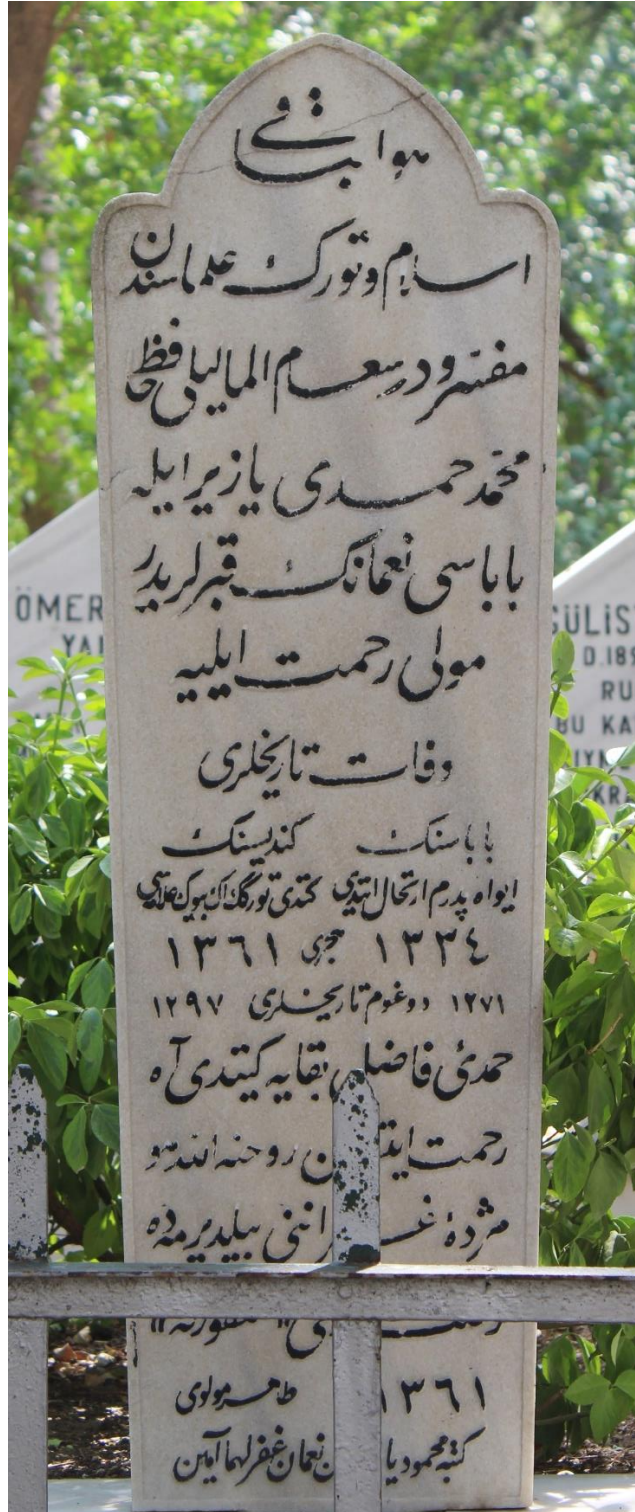 هوالباقی
اسلام و تورك علماسندن
مفسر و درسعام المالیلی حافظ
محمد حمدی یازیر ایله
باباسی نعمانك قبرلریدر
مولی رحمت ایلیه
وفات تاریخلری
باباسنك كندیسنك
ایواه پدرم ارتحال ایتدی كتدی توركك اك بیوك علامه‌سی
١٣٣٤ هجری ١٣٦١
١٢٧١ دوغوم تاریخلری ١٢٩٧
حمدئ فاضل بقایه كیتدی آه
رحمت ایتسین روحنه الله هو
مژدهٔ بیلدیرمه‌ده
١٣٦١ طاهر مولوی
كتبه محمود نعمان غفر لهما آمین
ÖMER
YA
GÜLİS
D.189
RU
BU KA
IYM
KRA